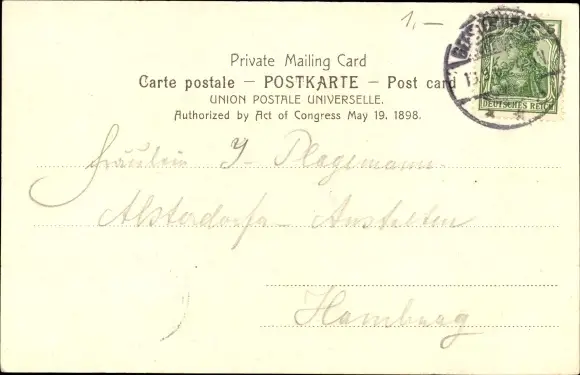 1,-
5
DEUTSCHES REICH
Private Mailing Card
Carte postale – POSTKARTE – Post card
UNION POSTALE UNIVERSELLE.
Authorized by Act of Congress May 19. 1898.
Fräulein J. Plagemann.
Alsterdorfer Anstalten
Hamburg